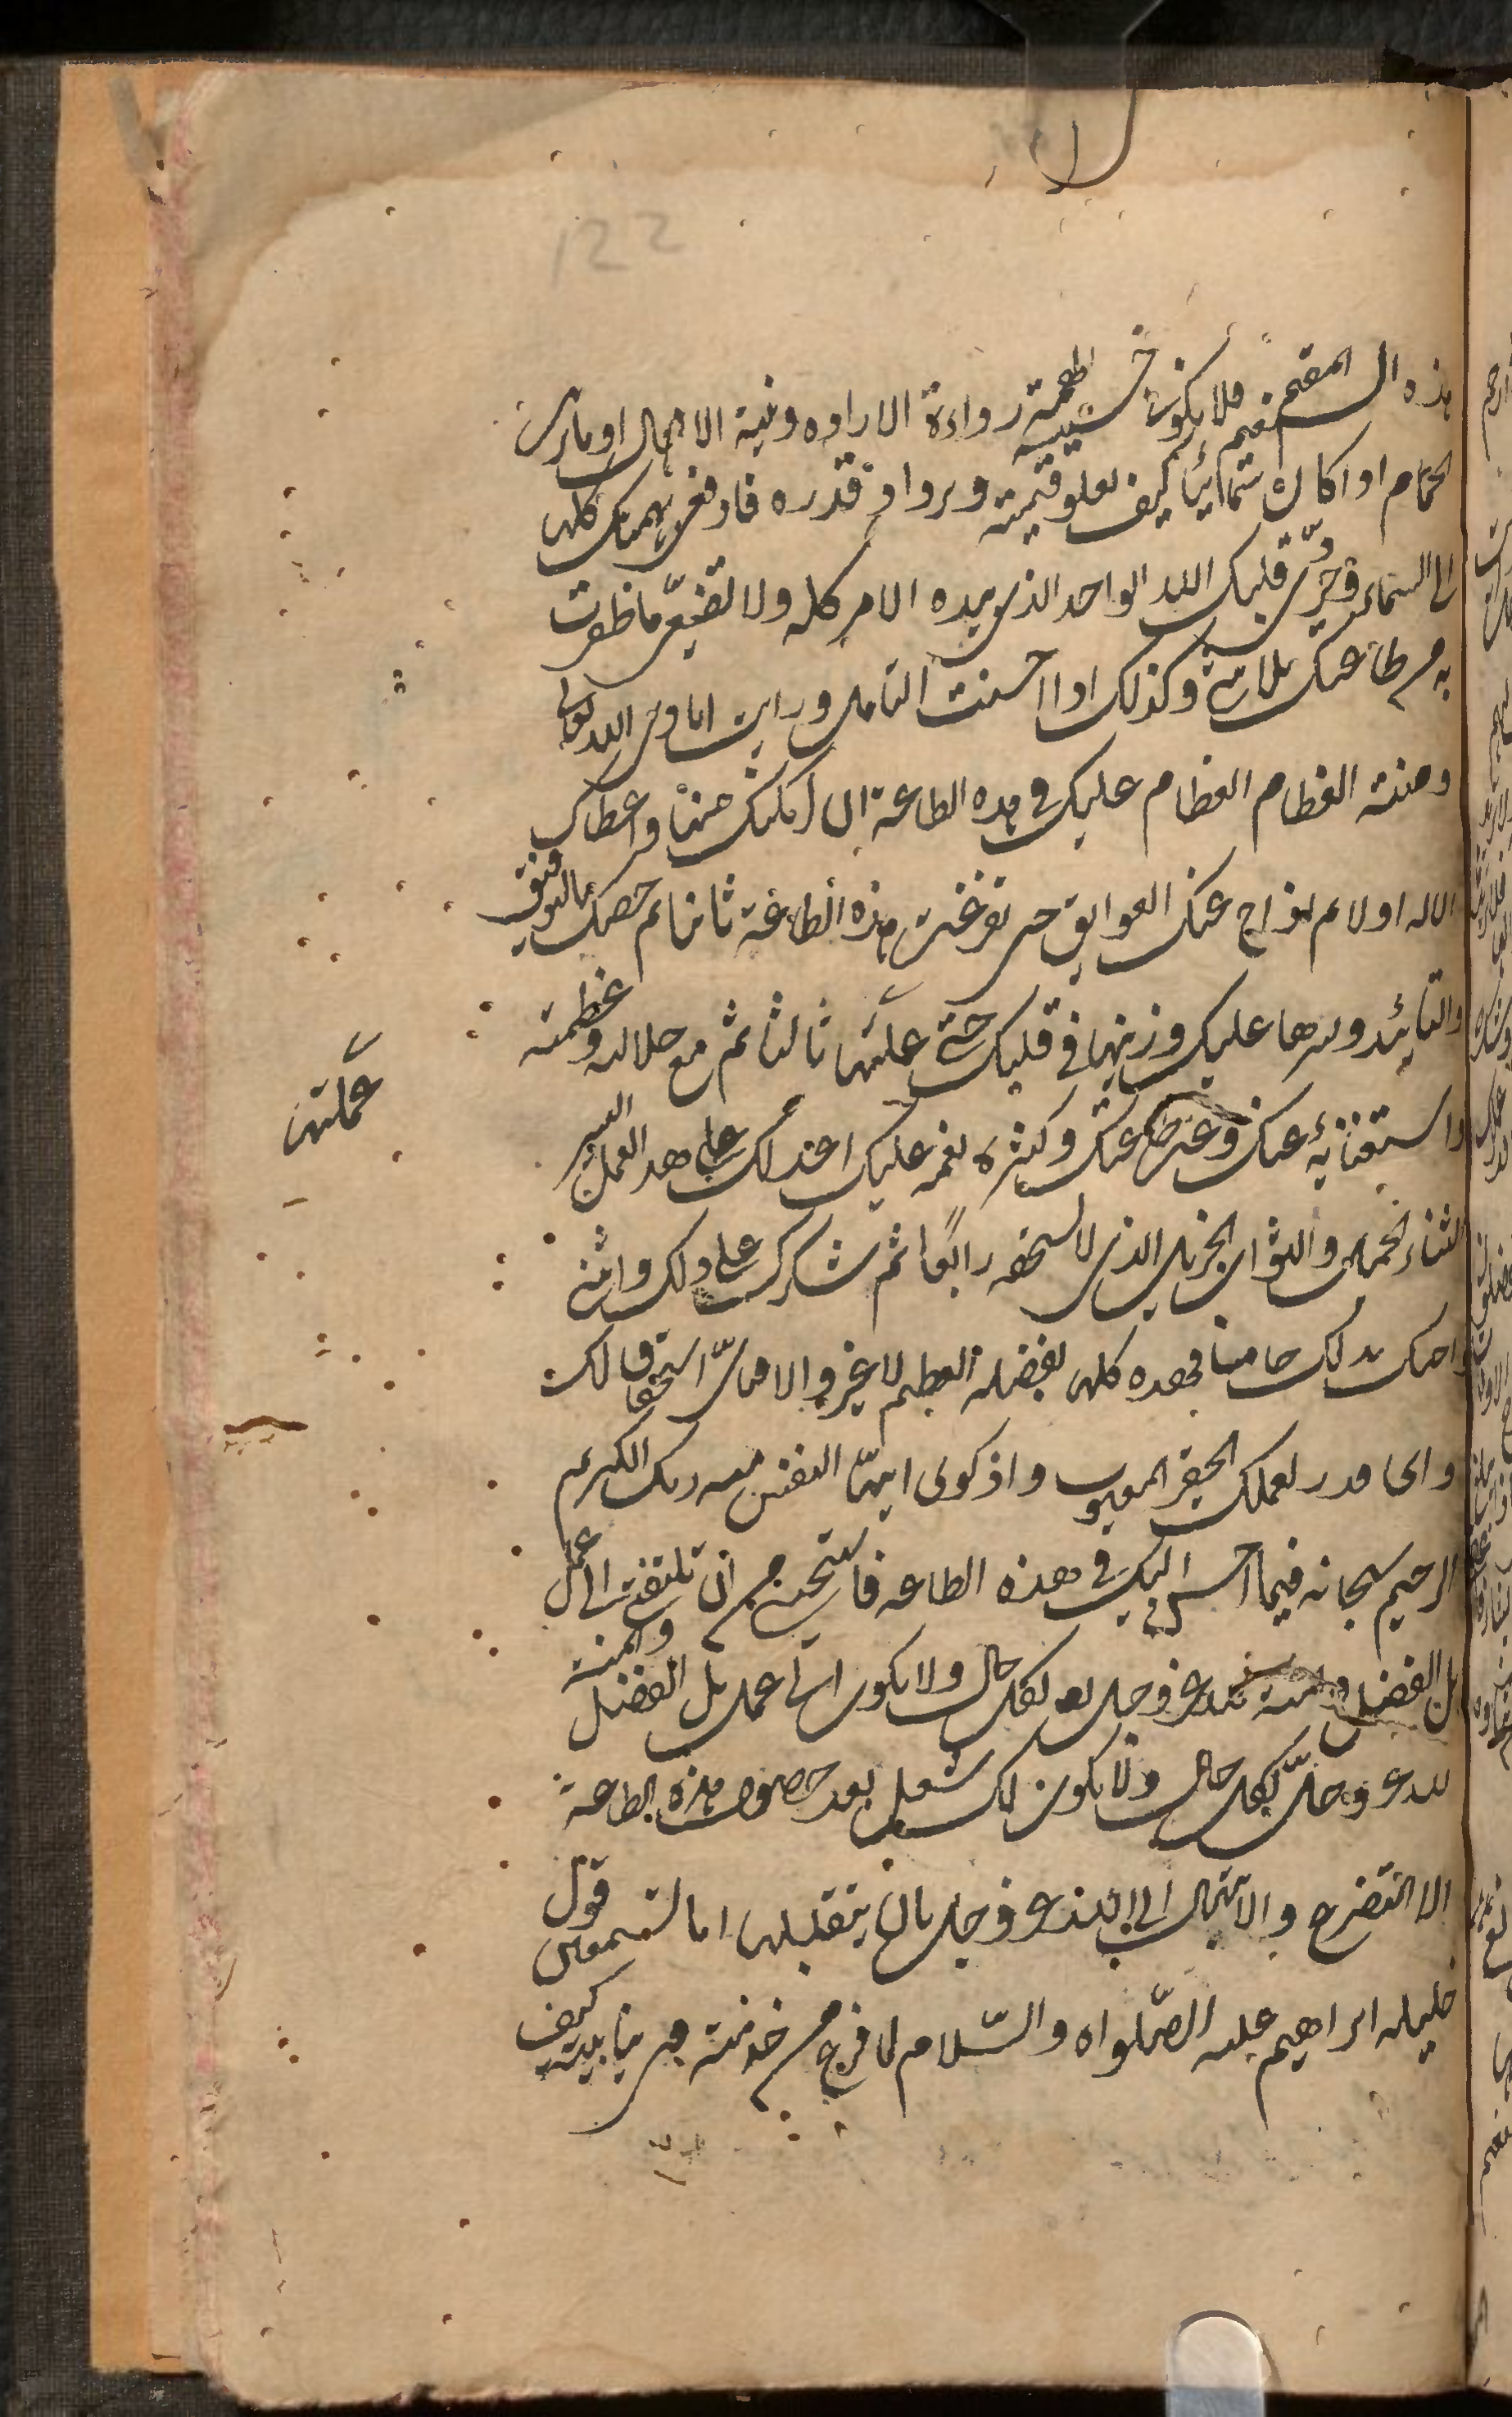 122
هذه السقيم المقيم فلا تكون خسيسة الهمة ردائة الارادة ونية الا الحال او ما ترى
الحمام اذا كان سمائيا كيف تعلو قيمته ويزداد قدره فارفعى همتك كلها
الى السماء وجرّدى قلبك لله الواحد الذى بيده الامر كله ولا تضيّعى ما ظفرت
به من طاعتك بلا شئ وكذلك اذا احسنت التامل ورايت ايادى الله تعالى
ومننه العظام العظام عليك فى هذه الطاعة ان امكنك منها واعطاك
الاله اولا ثم ازاح عنك العوايق حتى تفرغت هذه الطاعة ثانيا ثم خصك بالتوفيق
والتائيد ويسرها عليك وزينها فى قلبك حتى عملتها ثالثا ثم مع جلاله وعظمته
واستغنائه عنك وعن عملك وكثرة نعمه عليك اعد لك على هذا العمل اليسير
الثناء الجميل والثواب الجزيل الذى لا تستحقه رابعًا ثم شكرك على ذلك واثنى
واحبك بذلك خامسا فهذه كلها بفضله العظيم لا غير والا فاىّ استحقاق لك
واى قدر لعملك الحقير المعيوب واذكرى ايتها النفس منة ربك الكريم
الرحيم سبحانه فيما احسن اليك فى هذه الطاعة فاستحيى من ان تلتفتى الى عمل
بل الفضل والمنة لله عز وجل بكل حال ولا يكون الى عمل بل الفضل والمنة
لله عز وجلّ بكل حال ولا يكون لك شغل بعد حصول هذه الطاعة
الا التضرع والابتهال الى الله عز وجل بان يتقبلها اما تسمعين قول
خليله ابراهيم عليه الصّلواة والسّلام لما فرغ من خدمته فى بناء بيته كيف
عملتها